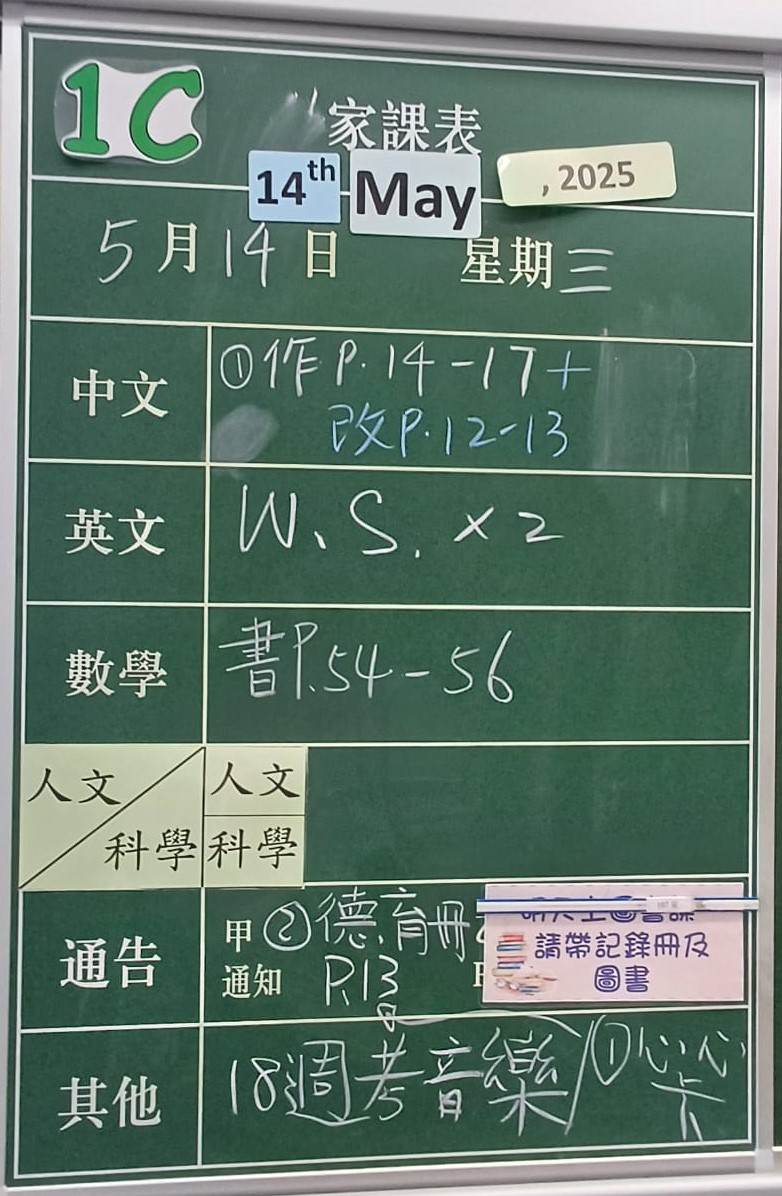 1C
家課表
14th May , 2025
5月14日 星期三
中文 ①作P.14-17+
改P.12-13
英文 W.S. x2
數學 書P.54-56
人文 科學 人文
科學
通告 甲②德育冊
通知 P.13
明天上圖書課
請帶記錄冊及
圖書
其他 18週考音樂/①心心
卡